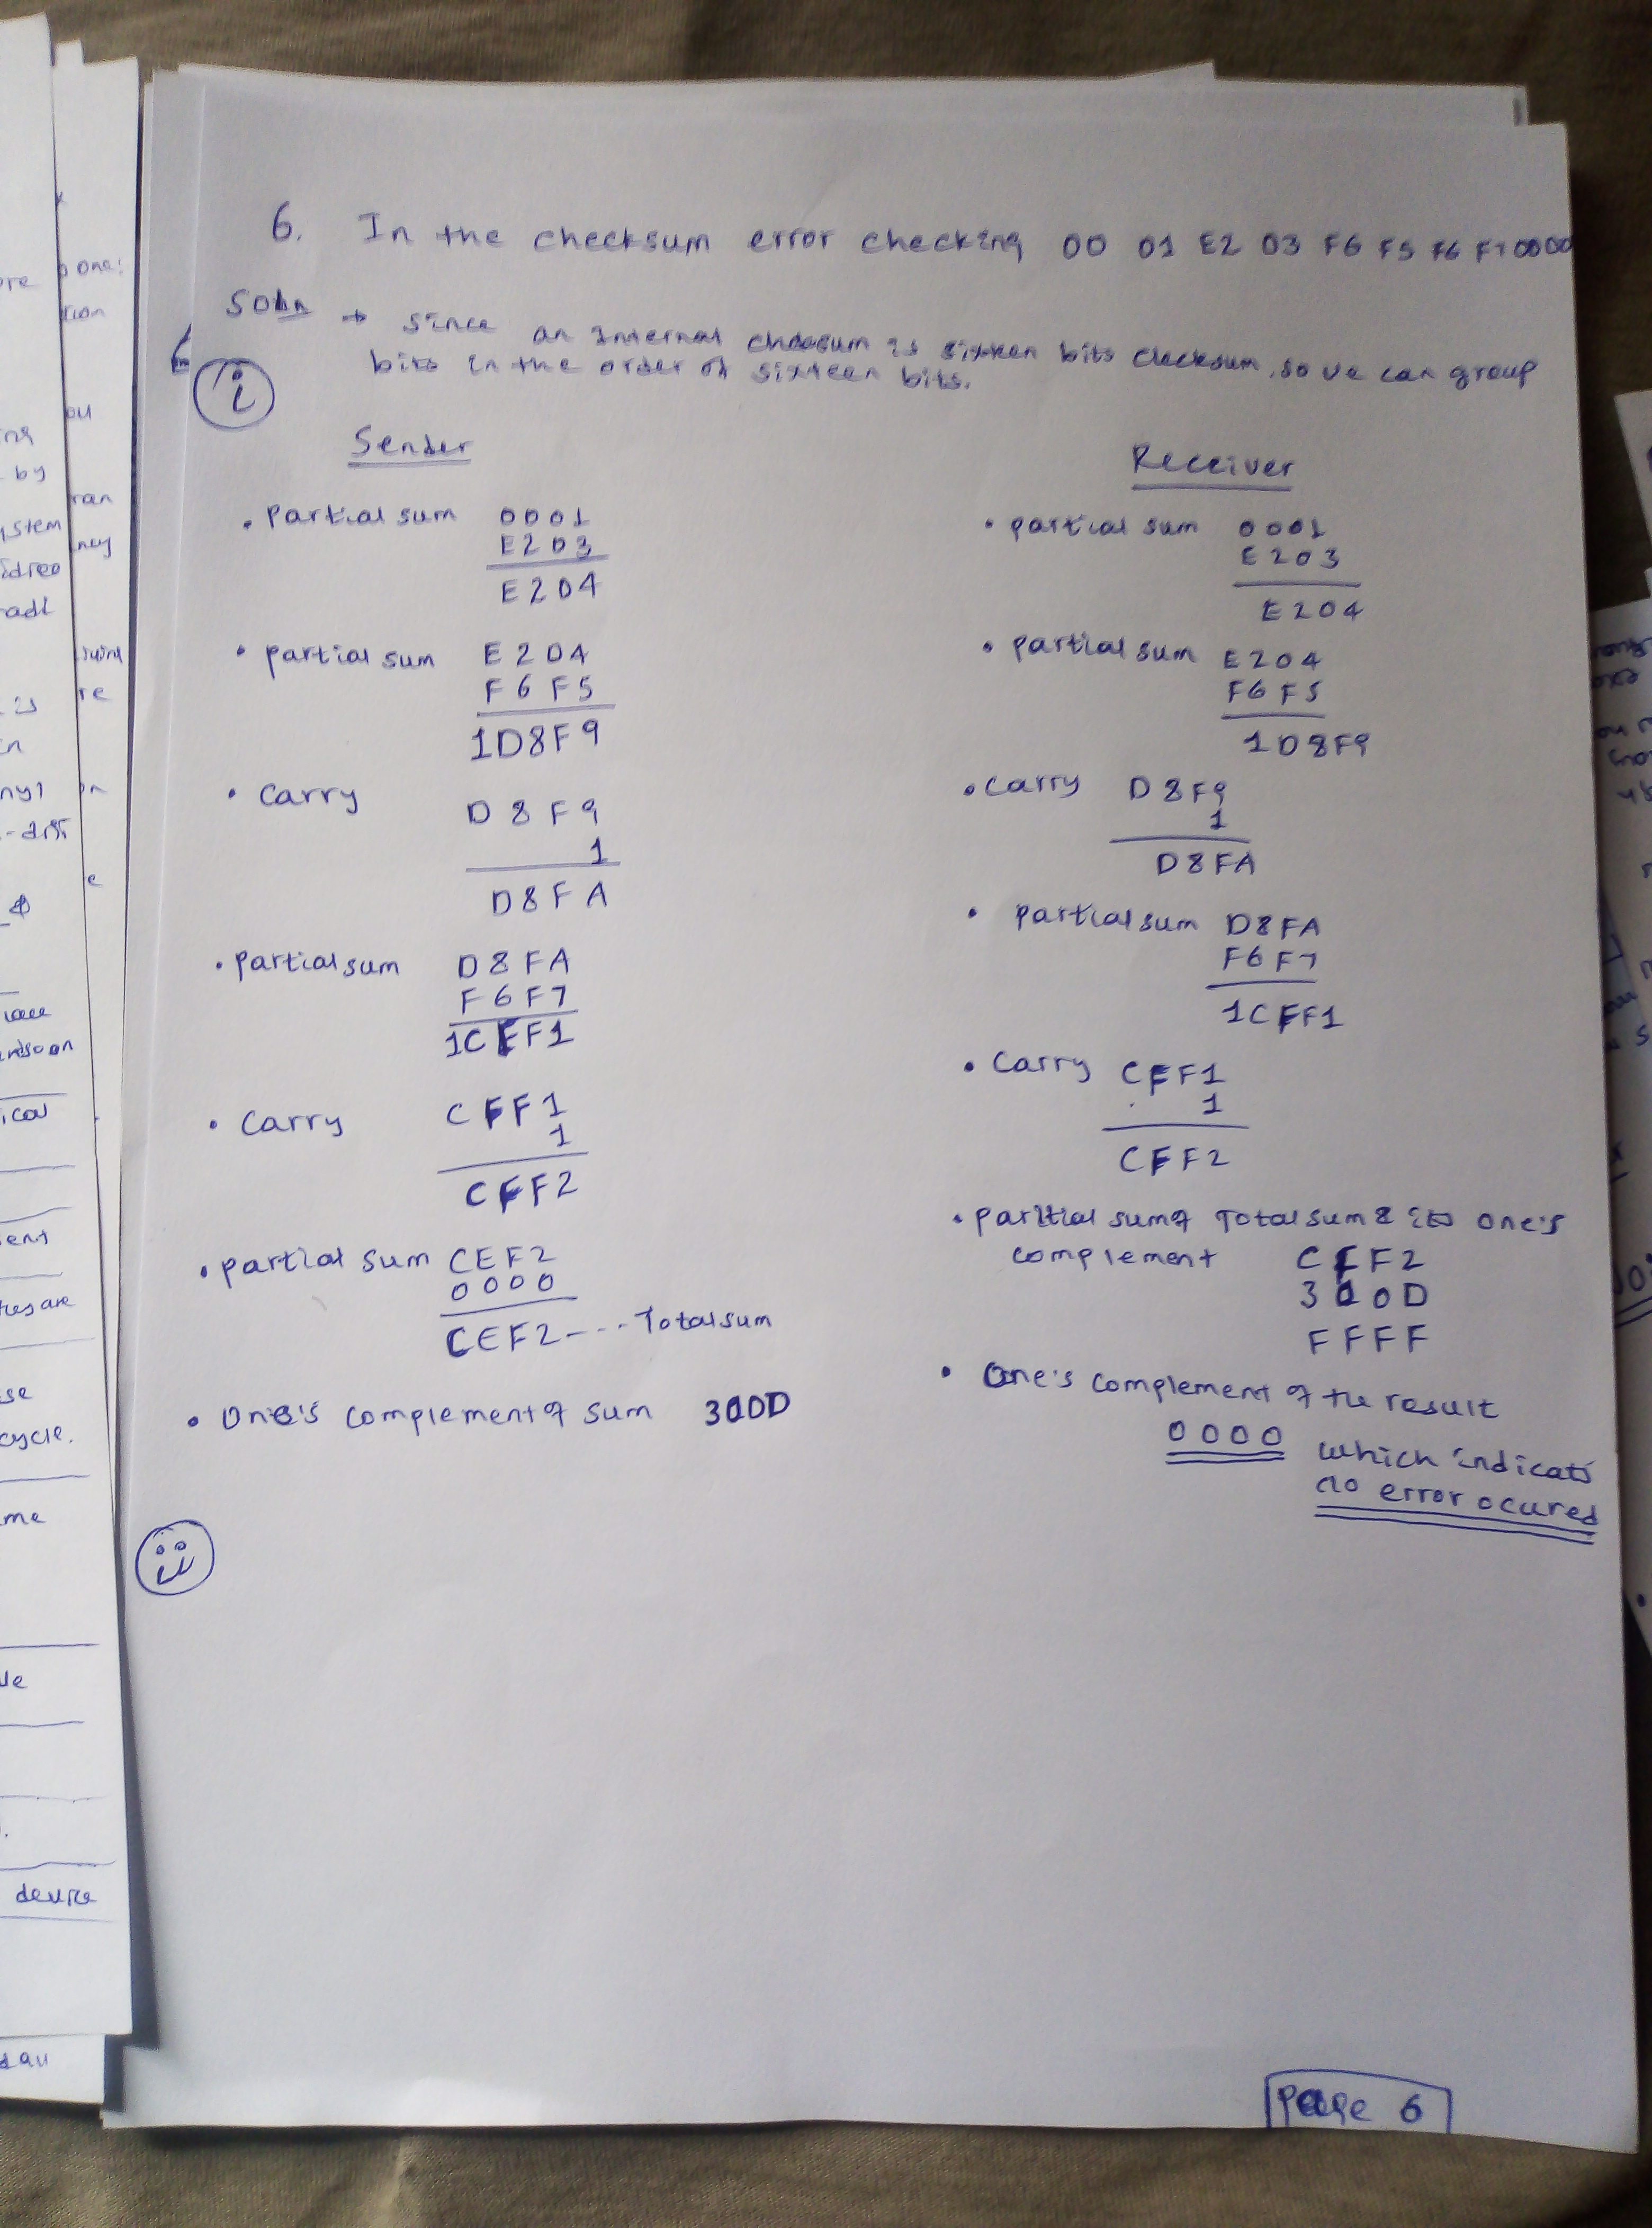 6. In the checksum error checking 00 01 E2 03 F6 F5 F6 F7 00 00
Soln → since an Internal checksum is sixteen bits checksum, so we can group
bits in the order of sixteen bits.
i
Sender
• Partial sum 0001
E203
E204
• partial sum E204
F6F5
1D8F9
• Carry D8F9
1
D8FA
• partial sum D8FA
F6F7
1CFF1
• Carry CFF1
1
CFF2
• partial sum CEF2
0000
CEF2 --- Total sum
• One's complement of sum 300D
Receiver
• partial sum 0001
E203
E204
• partial sum E204
F6F5
1D8F9
• Carry D8F9
1
D8FA
• partial sum D8FA
F6F7
1CFF1
• Carry CFF1
1
CFF2
• partial sum of Total sum & its one's
complement CFF2
300D
FFFF
• One's complement of the result
0000 which indicats
no error ocured
page 6
ore
one:
tion
ou
by
ran
ystem
is
re
ent
cycle.
me
device